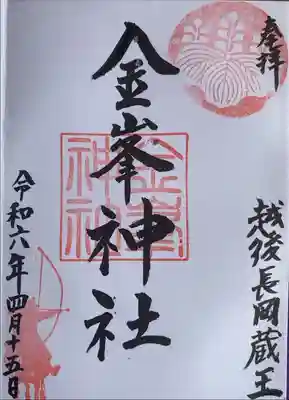 奉拝
越後長岡蔵王
金峯神社
金峯神社
令和六年四月十五日